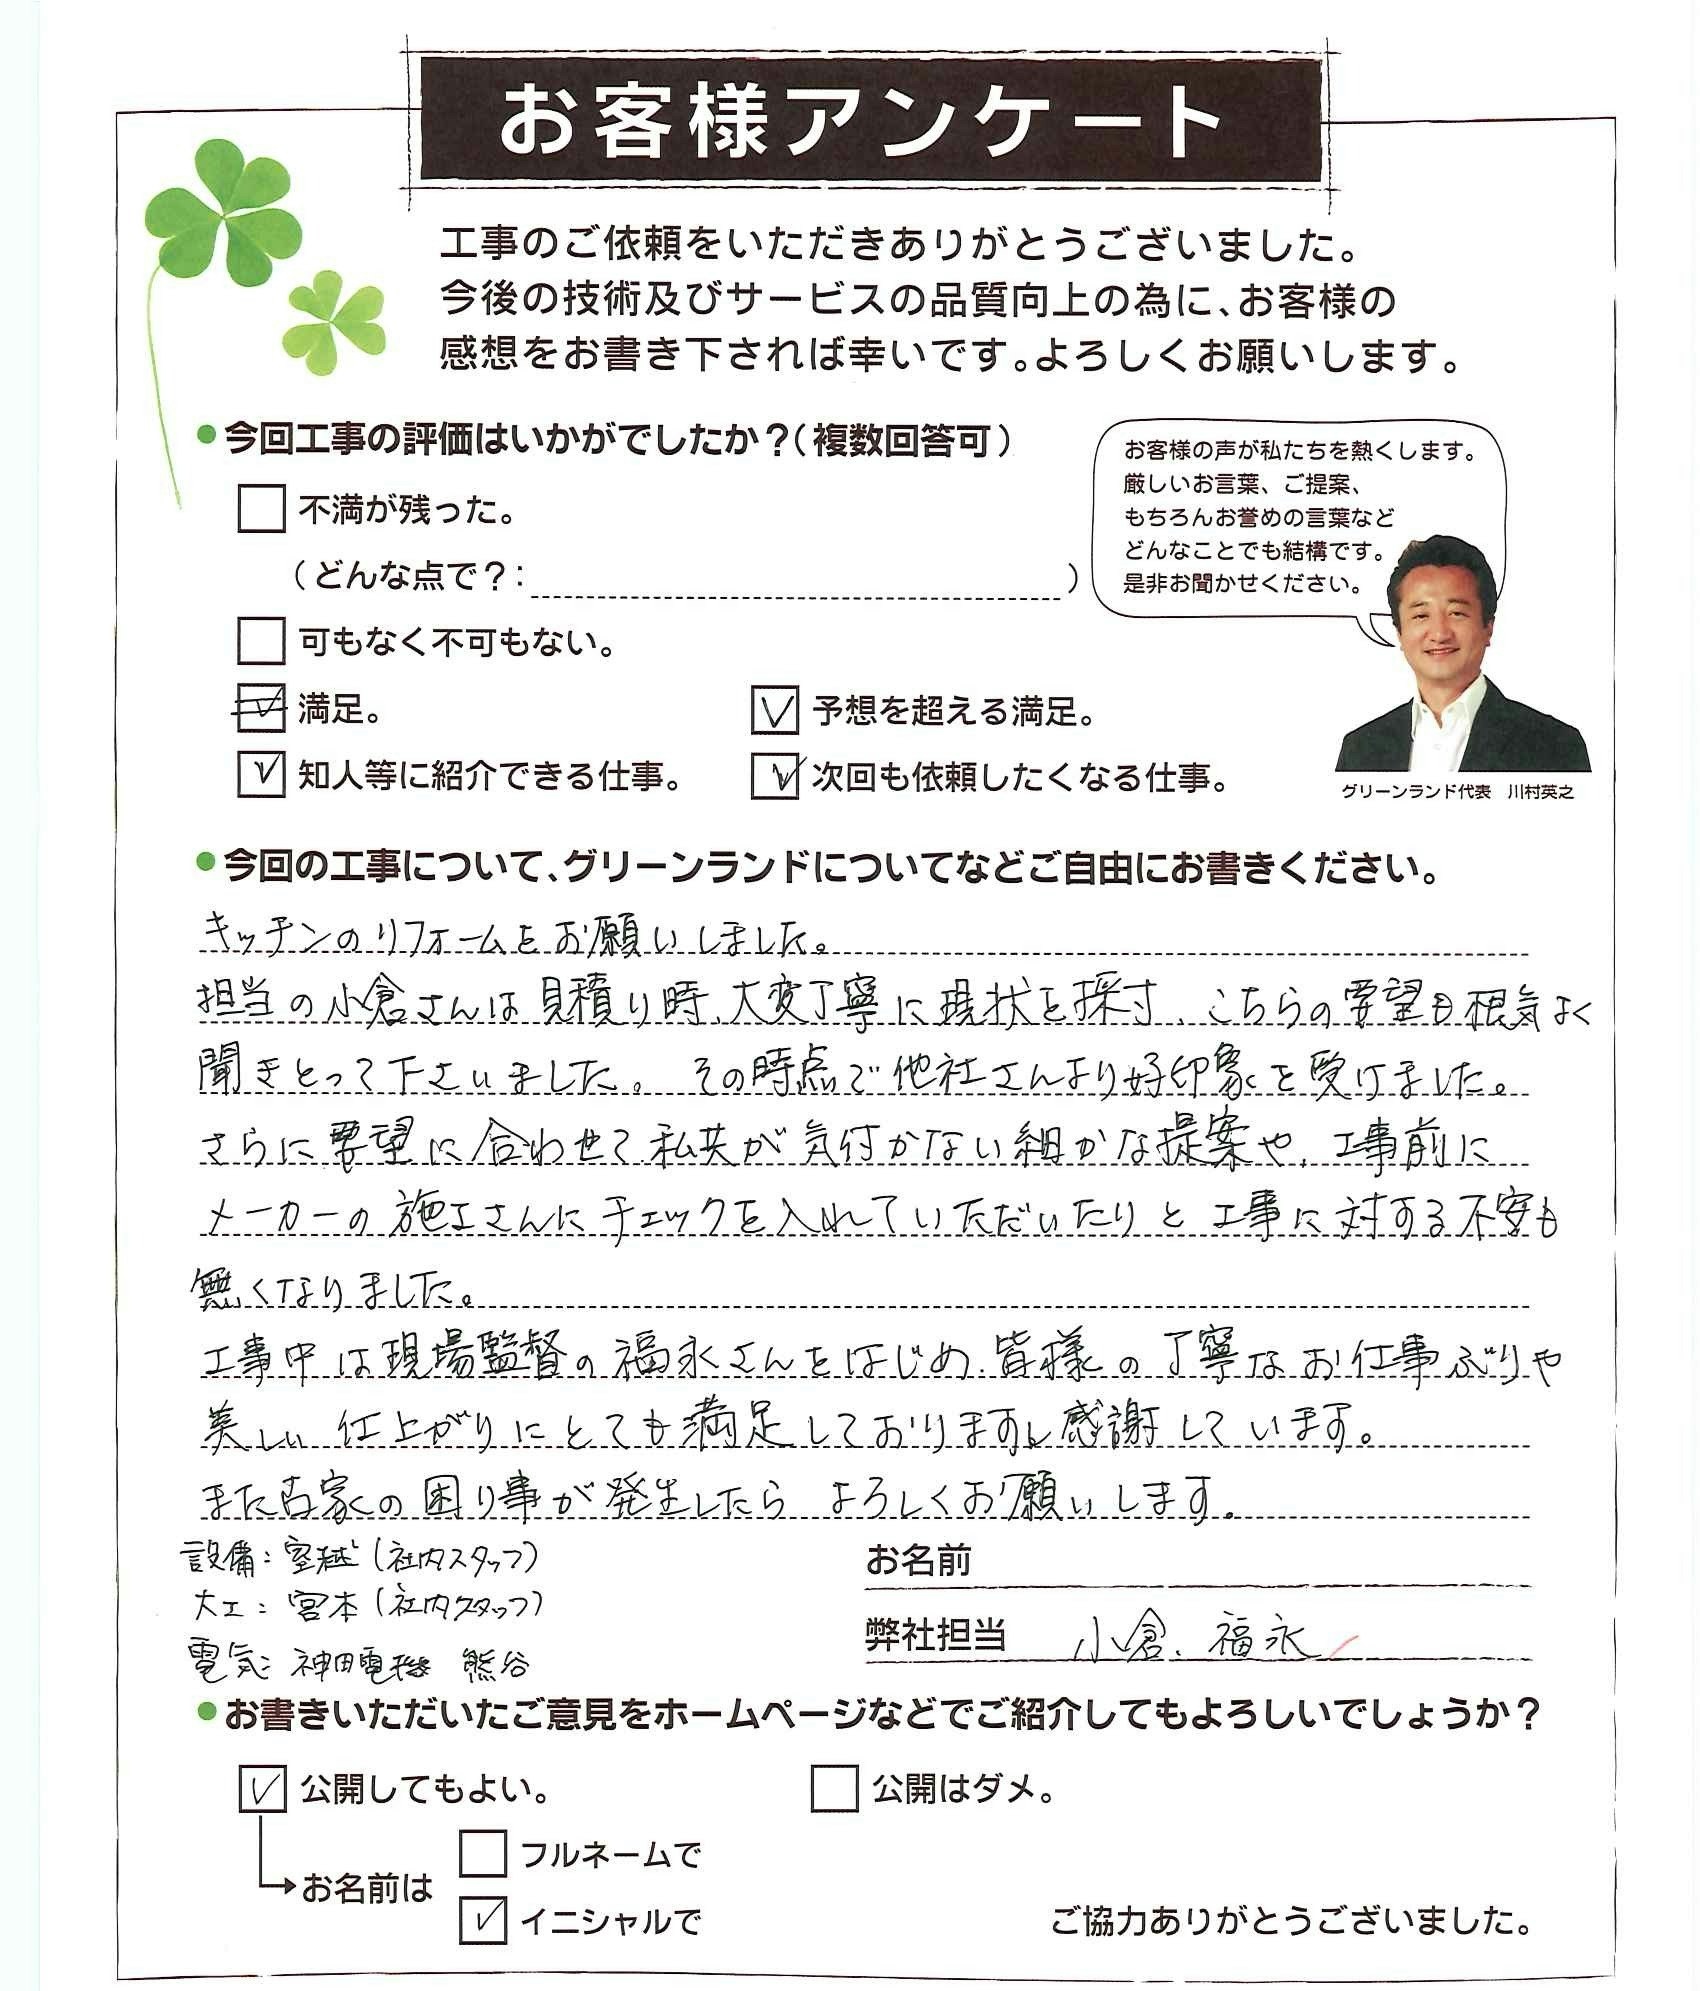 お客様アンケート
工事のご依頼をいただきありがとうございました。
今後の技術及びサービスの品質向上の為に、お客様の
感想をお書き下されば幸いです。よろしくお願いします。
今回工事の評価はいかがでしたか？（複数回答可）
不満が残った。
（どんな点で？：　）
可もなく不可もない。
満足。
予想を超える満足。
知人等に紹介できる仕事。
次回も依頼したくなる仕事。
お客様の声が私たちを熱くします。
厳しいお言葉、ご提案、
もちろんお誉めの言葉など
どんなことでも結構です。
是非お聞かせください。
グリーンランド代表　川村英之
今回の工事について、グリーンランドについてなどご自由にお書きください。
キッチンのリフォームをお願いしました。
担当の小倉さんは見積り時、大変丁寧に現状を採寸、こちらの要望も根気よく
聞きとって下さいました。その時点で他社さんより好印象を受けました。
さらに要望に合わせて、私共が気付かない細かな提案や、工事前に
メーカーの施工さんにチェックを入れていただいたりと工事に対する不安も
無くなりました。
工事中は現場監督の福永さんをはじめ、皆様の丁寧なお仕事ぶりや
美しい仕上がりにとても満足しております。感謝しています。
また古家の困り事が発生したらよろしくお願いします。
設備：室越（社内スタッフ）
大工：宮本（社内スタッフ）
電気：神田電機　熊谷
お名前
弊社担当　小倉、福永
お書きいただいたご意見をホームページなどでご紹介してもよろしいでしょうか？
公開してもよい。
公開はダメ。
お名前は
フルネームで
イニシャルで
ご協力ありがとうございました。